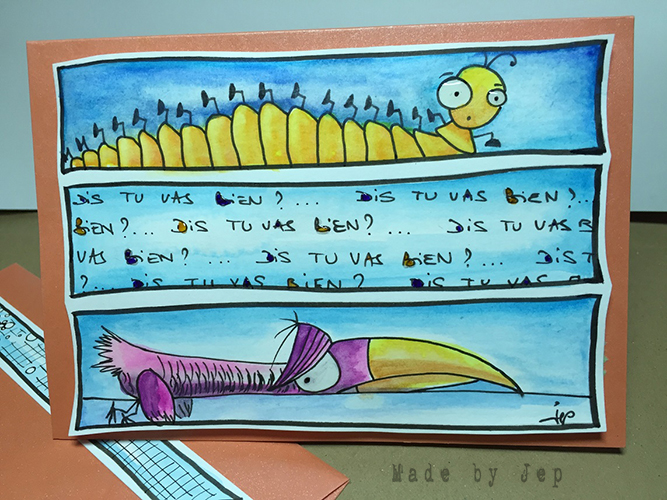 Dis tu vas bien ?... Dis tu vas bien ?..
bien ?... Dis tu vas bien ?... Dis tu vas B
vas bien ?... Dis tu vas bien ?... Dis t
?... Dis tu vas bien ?... Dis tu vas
jep
Made by Jep